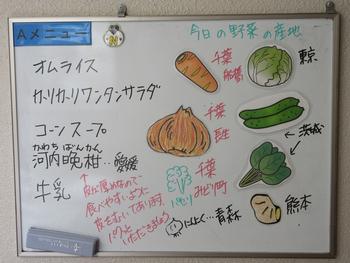 Aメニュー
オムライス
カリカリワンタンサラダ
コーンスープ
かわち ばんかん
河内晩柑…愛媛
牛乳
↑
皮に厚めなので
食べやすいように
皮をむいてあります
いただきましょう
今日の野菜の産地
千葉
船橋
東京
千葉
長生
茨城
千葉
みどり町
にんにく…青森
熊本